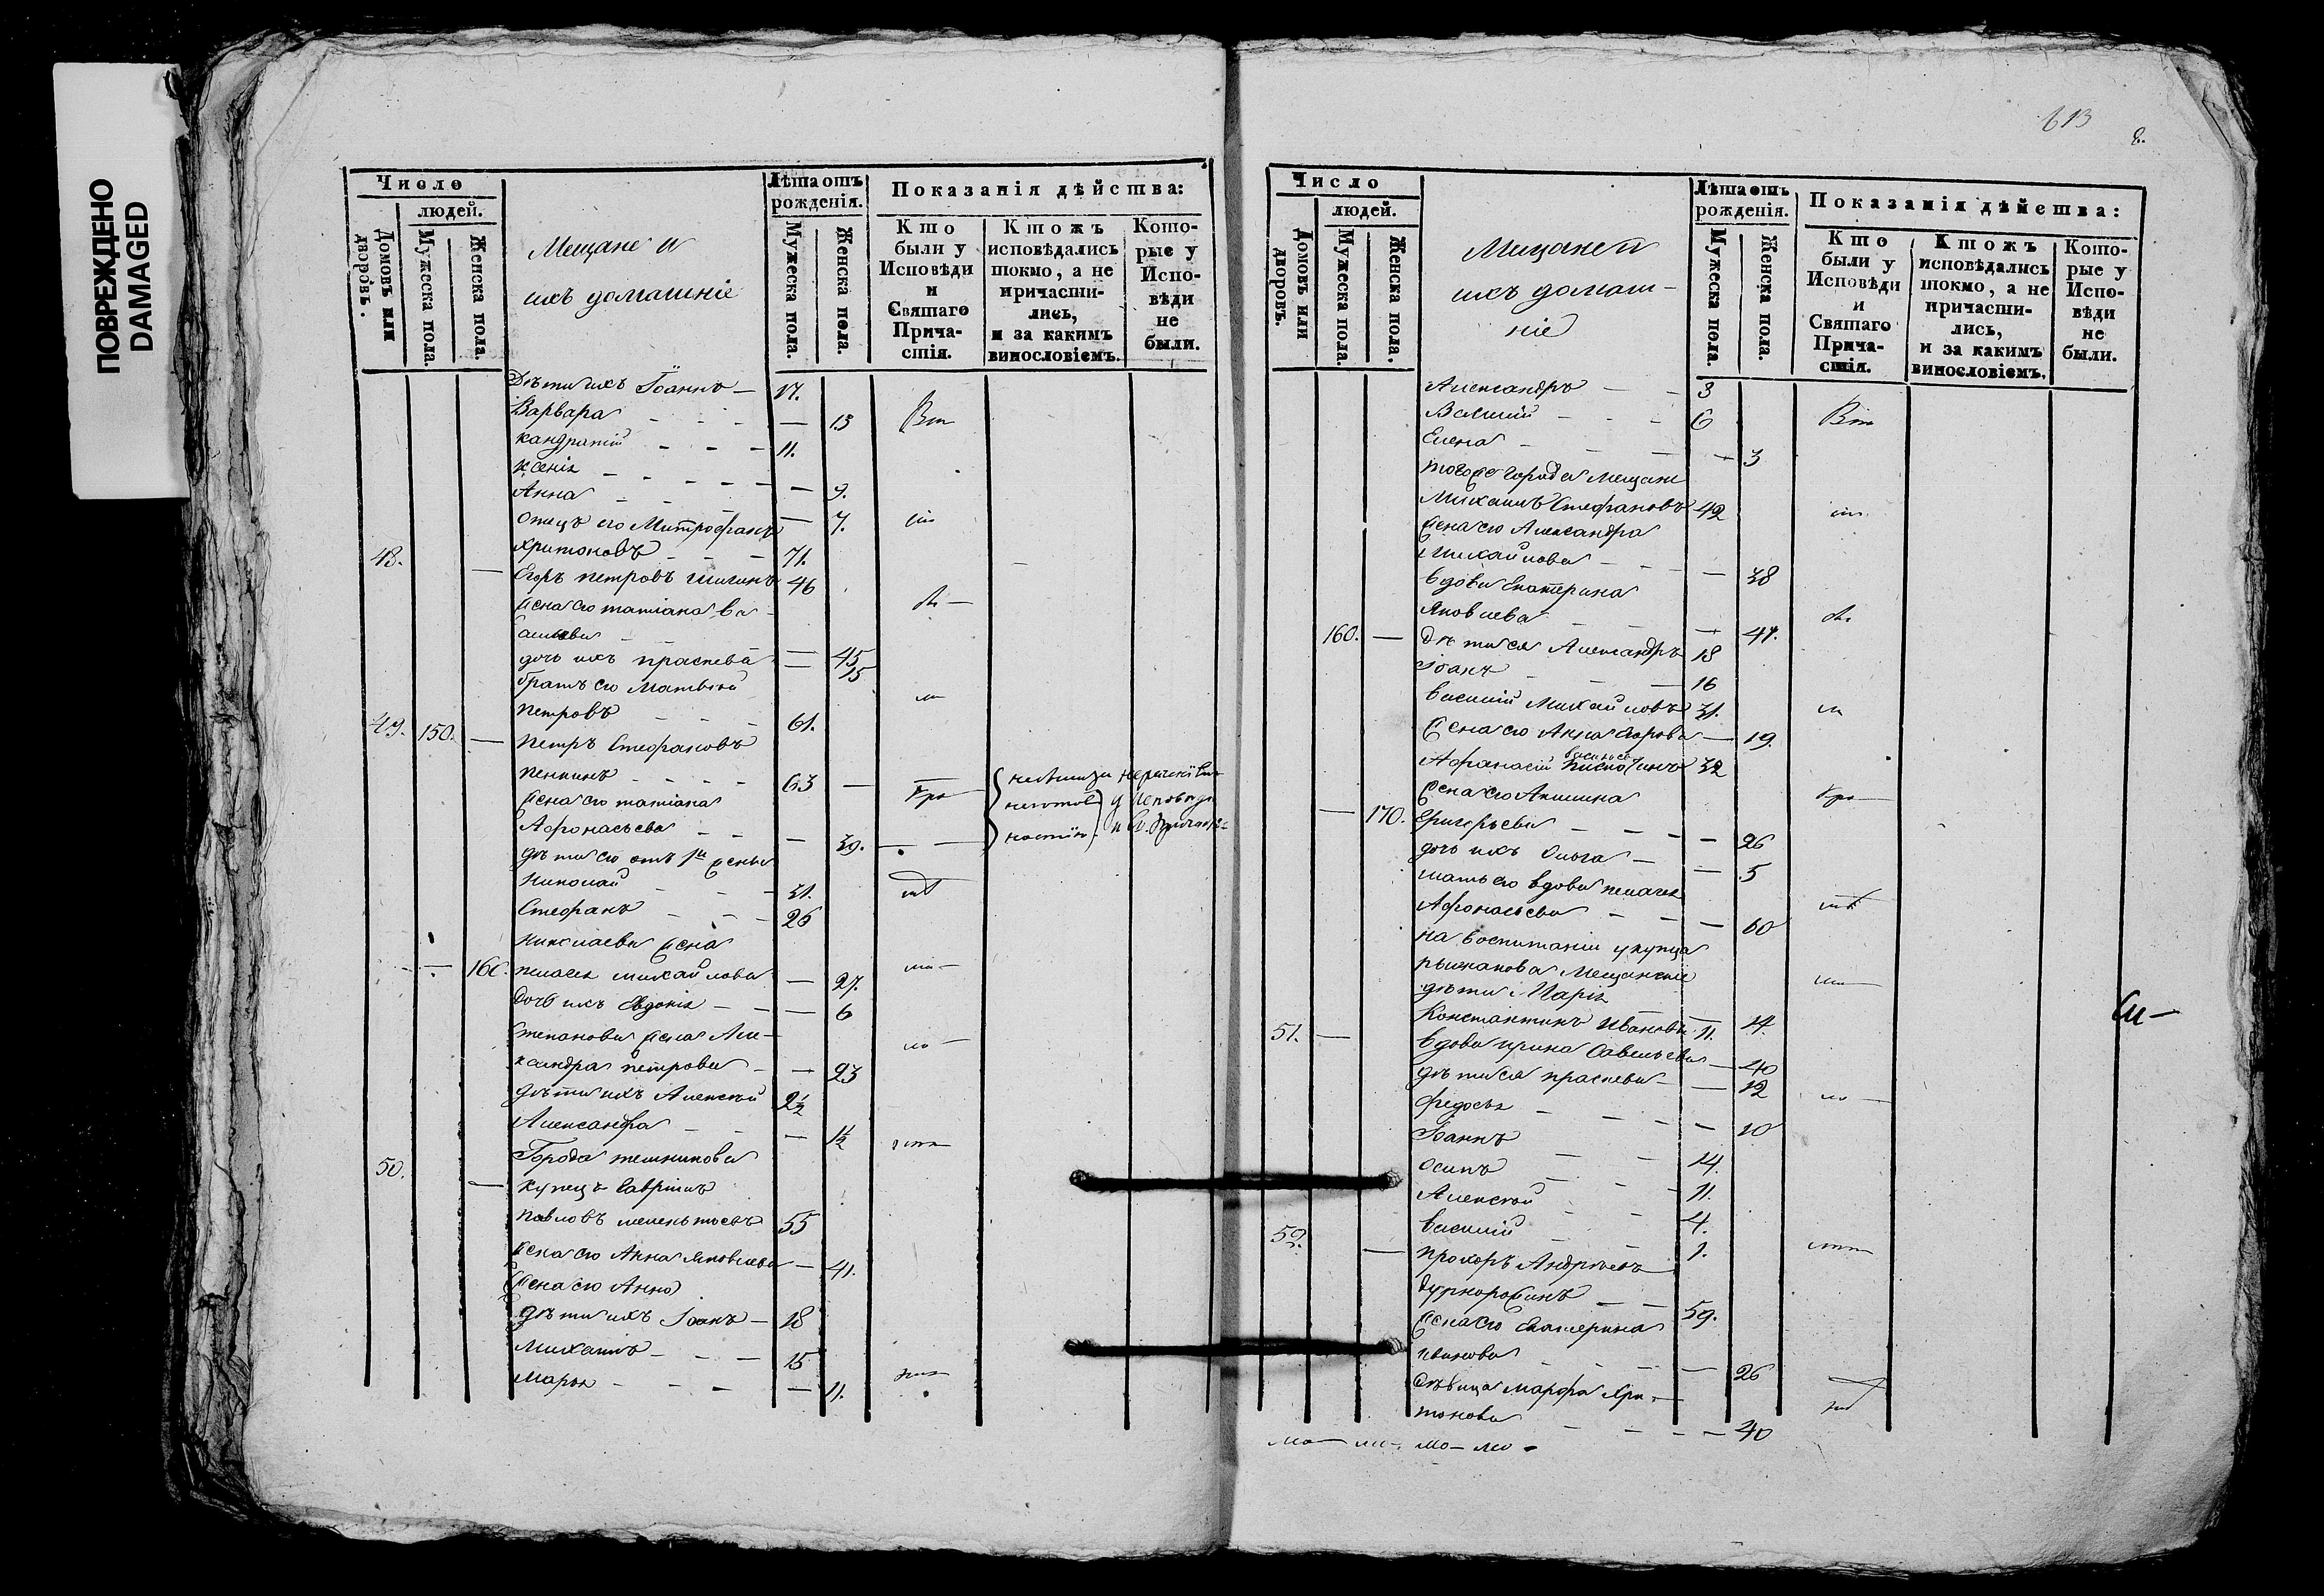 ПОВРЕЖДЕНО
DAMAGED
Число
людей.
Домовъ или дворовъ.
Мужеска пола.
Женска пола.
Мещане и
ихъ домашніе
Лѣта отъ рожденія.
Мужеска пола.
Женска пола.
Показанія дѣйства:
Кто были у Исповѣди и Святаго Причастія.
Ктожъ исповѣдались токмо, а не причастились, и за какимъ винословіемъ.
Которые у Исповѣди не были.
Дѣти ихъ Іоаннъ — 17.
Варвара — 13
Кандратій — 11.
Ксенія — 9.
Анна — 7.
Отецъ его Митрофанъ
Харитоновъ — 71.
48. — Егоръ Петровъ 46
Жена его Татіана Ва-
сильева — 45
дочь ихъ Праскева — 15
братъ его Матвѣй
Петровъ — 61.
49. 150. — Петръ Стефановъ
Пенкинъ — 63
Жена его Татіана
Афонасьева — 39.
дѣти его отъ 1й жены
Николай — 31.
Стефанъ — 26
Николаева жена
160. Пелагея Михайлова — 27.
дочь ихъ Евдокія — 6
Степанова жена Але-
ксандра Петрова — 23
дѣти ихъ Алексѣй 2½
Александра — 1½
50. — Города Темникова
купецъ Гаврiилъ
Павловъ 55
Жена его Анна Яковлева — 41.
Жена его Анна
дѣти ихъ Іоанъ — 18
Михаилъ — 15
Марья — 11.
613
Число
людей.
Домовъ или дворовъ.
Мужеска пола.
Женска пола.
Мещане и
ихъ домаш-
ніе
Лѣта отъ рожденія.
Мужеска пола.
Женска пола.
Показанія дѣйства:
Кто были у Исповѣди и Святаго Причастія.
Ктожъ исповѣдались токмо, а не причастились, и за какимъ винословіемъ.
Которые у Исповѣди не были.
Александръ — 3
Василій — 6
Елена — 3
того же города Мещане
Михаилъ Стефановъ 42
Жена его Александра
Михайлова — 38
вдова Екатерина
Яковлева — 47.
160. — дѣти ея Александръ 18
Іоанъ — 16
Василій Михайловъ 31.
Жена его Анна Егорова — 19.
Афанасій 32
Жена его Акилина
— 170. Григорьева — 26
дочь ихъ Ольга — 5
мать его вдова Пелагея
Афонасьева — 60
на воспитаніи у купца
Рыжакова Мещанскіе
дѣти Марія — 14.
Константинъ Ивановъ 11.
51. — вдова Ирина Савельева — 40
дѣти ея Праскева — 12
Федосья — 10
Іоаннъ — 14.
Осипъ — 11.
Алексѣй — 4.
Василій — 1.
52. — Прохоръ Андреевъ
59.
Жена его Екатерина
Иванова — 26
дѣвица Марфа Хри-
тонова — 40